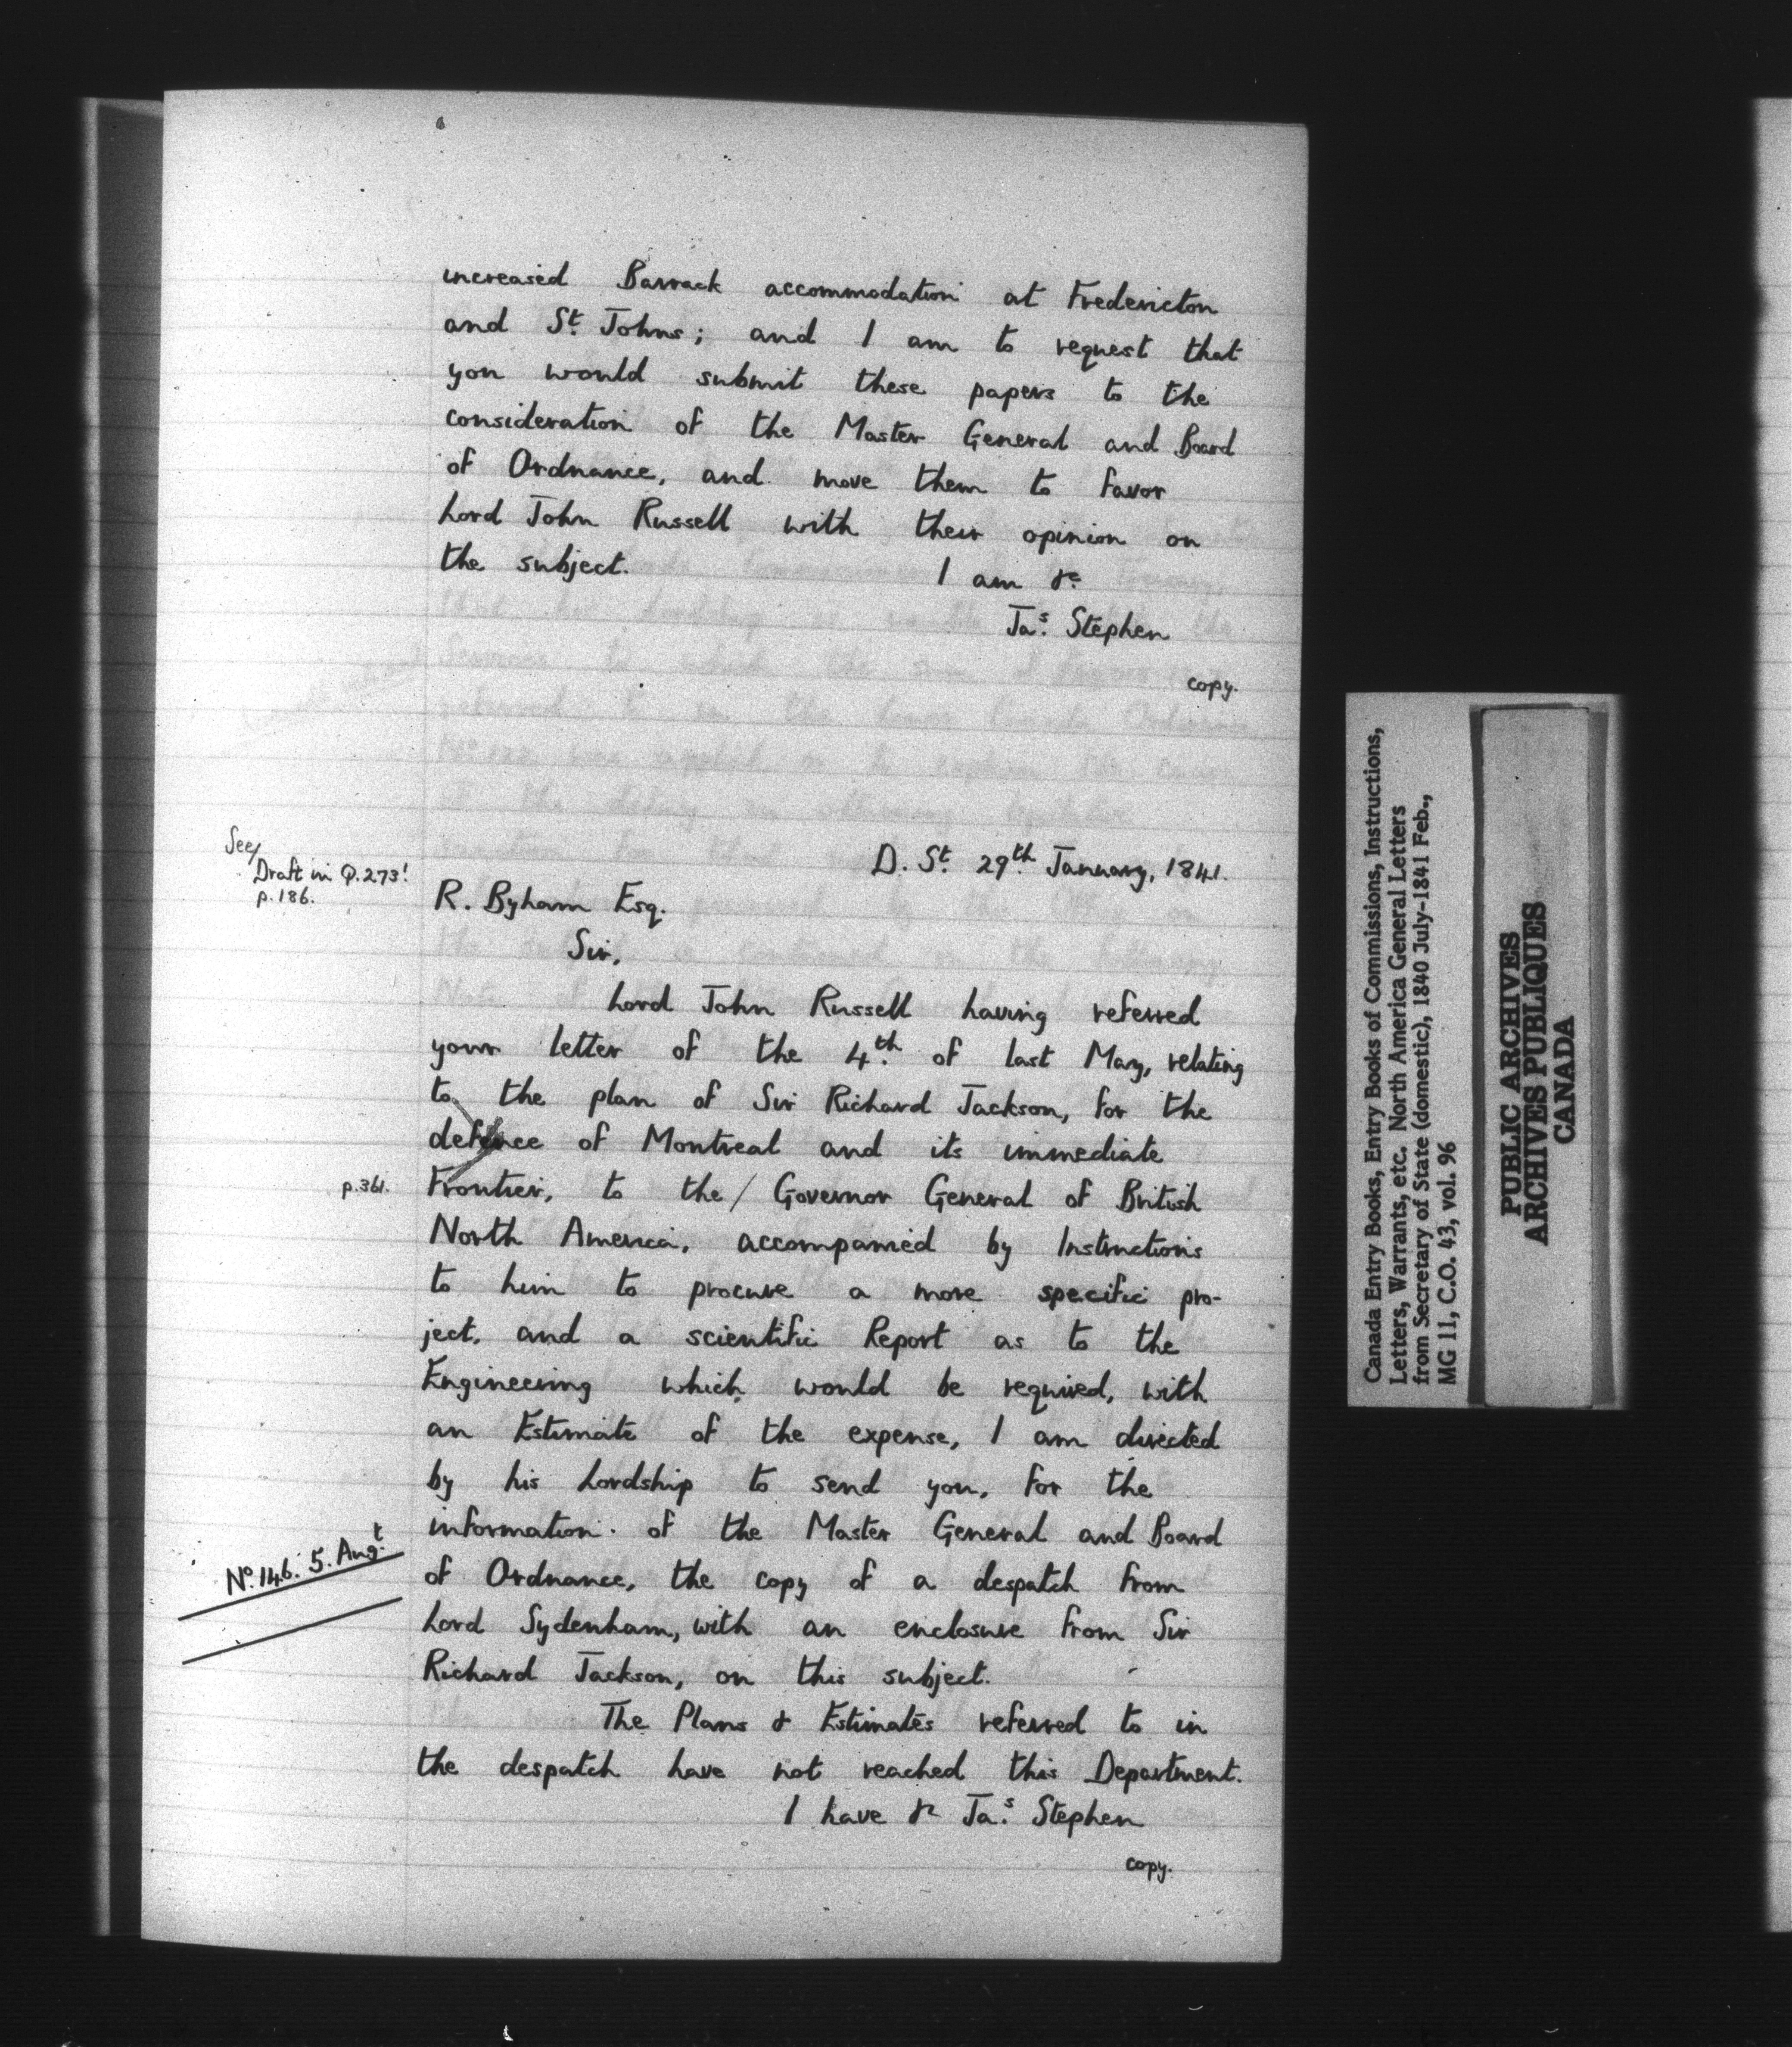 increased Barrack accommodation at Fredericton
and St. Johns; and I am to request that
you would submit these papers to the
consideration of the Master General and Board
of Ordnance, and move them to favor
Lord John Russell with their opinion on
the subject. I am &c.
Jas. Stephen
copy.
See/
Draft in Q.273!
p.186.
D. St. 29th January, 1841.
R. Byham Esq.
Sir,
Lord John Russell having referred
your letter of the 4th of last May, relating
to the plan of Sir Richard Jackson, for the
defence of Montreal and its immediate
p.361.
Frontier, to the / Governor General of British
North America, accompanied by Instructions
to him to procure a more specific pro-
ject, and a scientific Report as to the
Engineering which would be required, with
an Estimate of the expense, I am directed
by his Lordship to send you, for the
information of the Master General and Board
No. 146. 5. Augt.
of Ordnance, the copy of a despatch from
Lord Sydenham, with an enclosure from Sir
Richard Jackson, on this subject.
The Plans & Estimates referred to in
the despatch have not reached this Department.
I have &c Jas. Stephen
copy.
Canada Entry Books, Entry Books of Commissions, Instructions,
Letters, Warrants, etc. North America General Letters
from Secretary of State (domestic), 1840 July-1841 Feb.,
MG 11, C.O. 43, vol. 96
PUBLIC ARCHIVES
ARCHIVES PUBLIQUES
CANADA